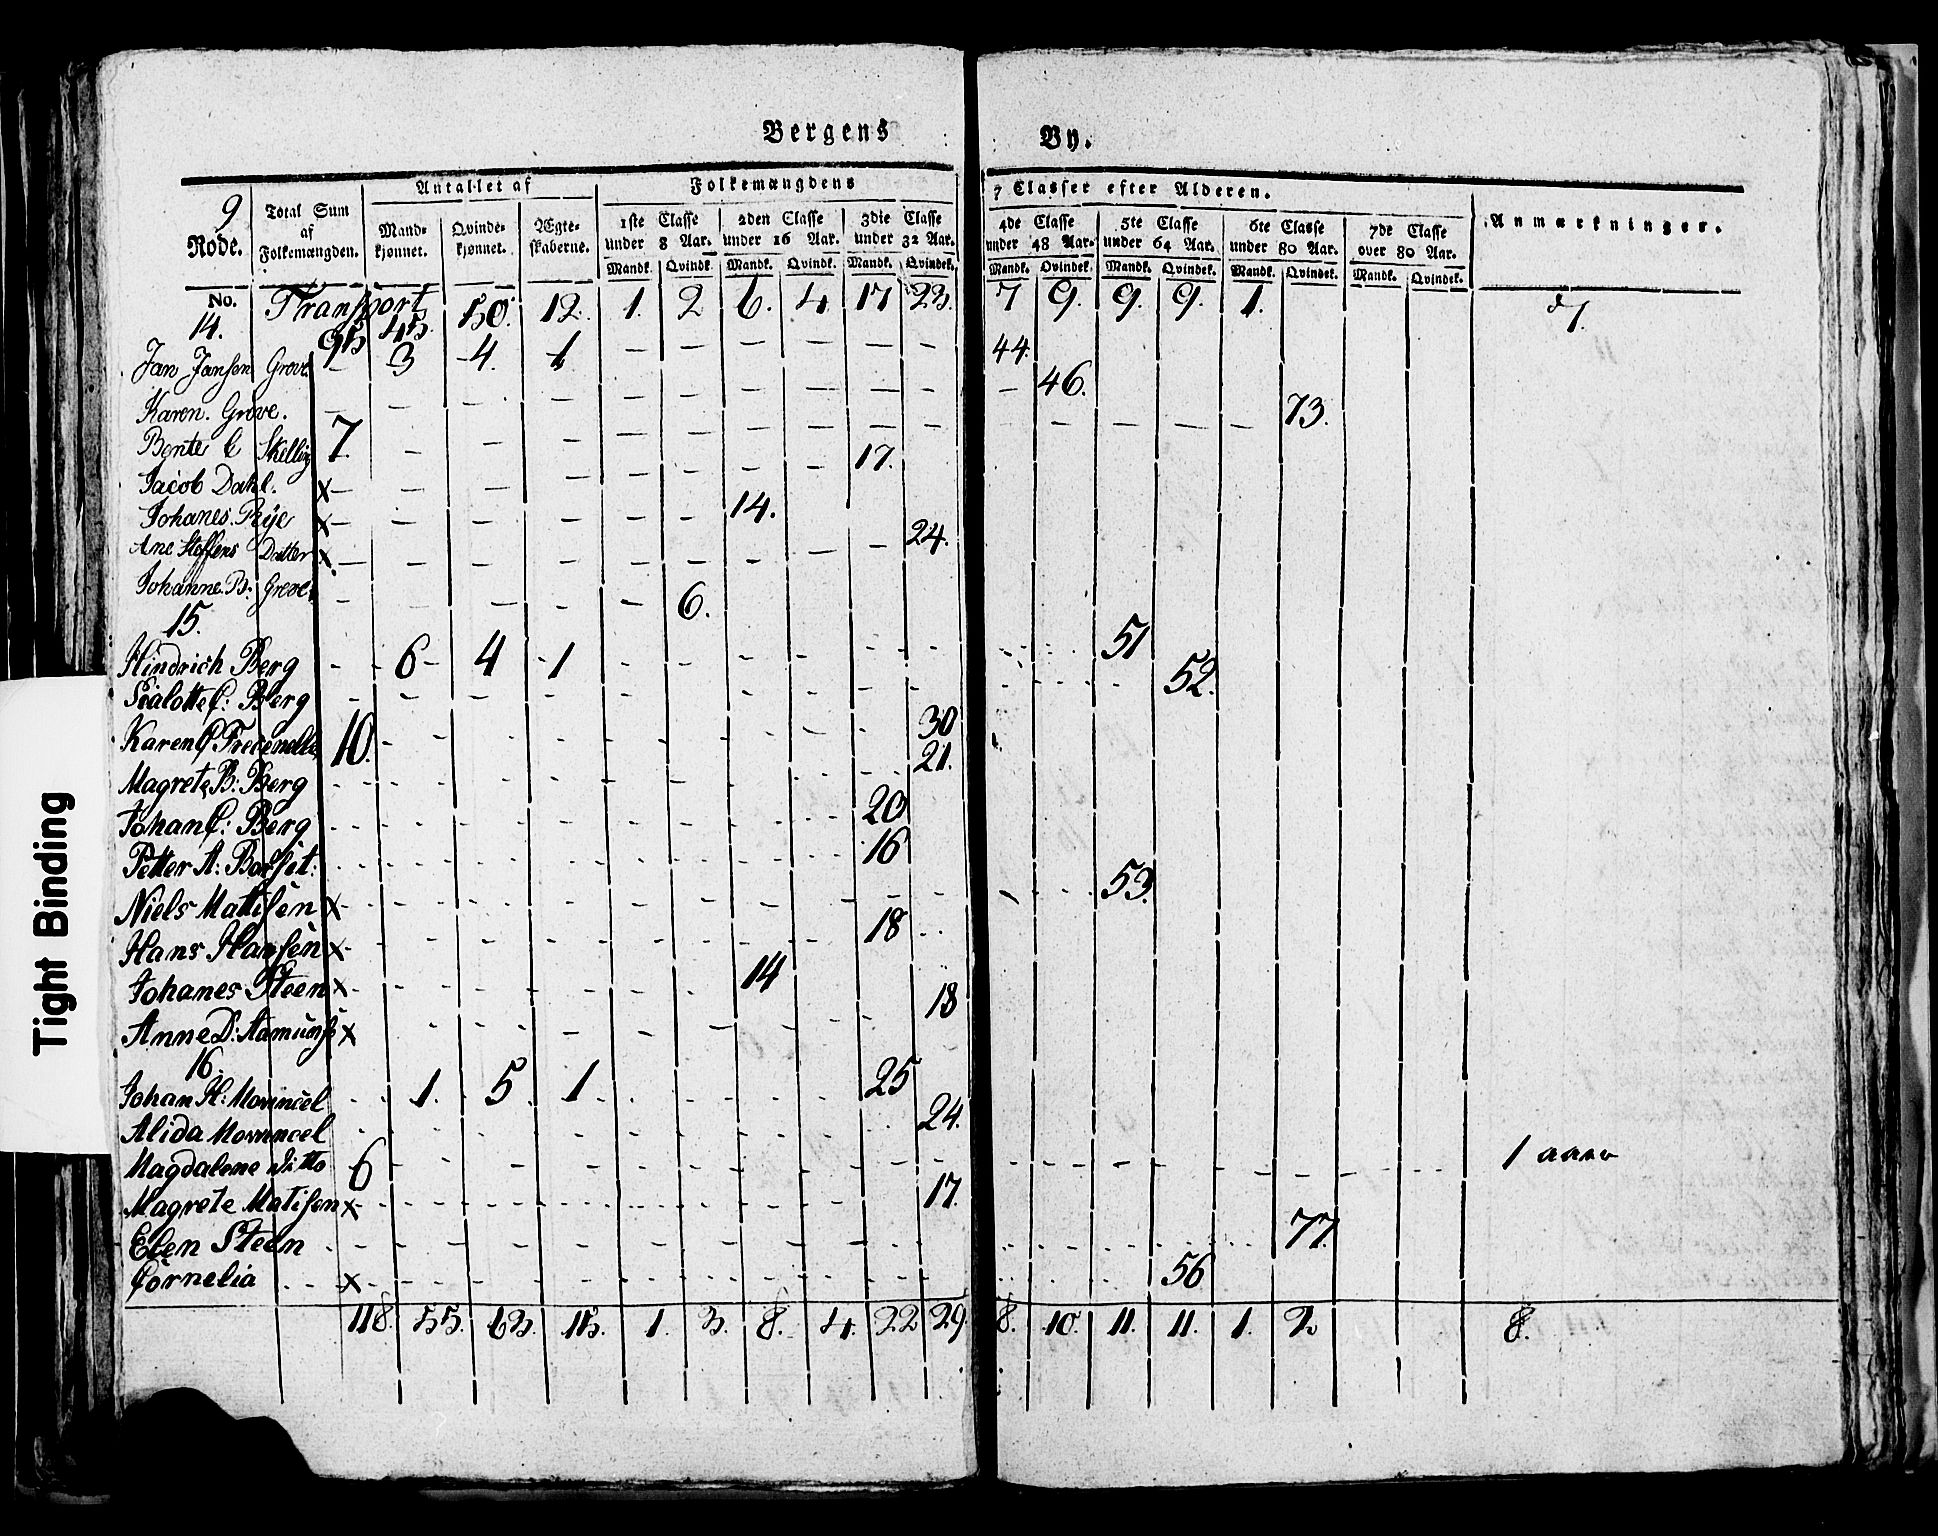 Bergens By.
9 Rode. Total Sum af Folkemængden. Antallet af Mandkjønnet. Qvindekjønnet. Ægteskaberne. Folkemængdens 7 Classer efter Alderen. Anmærkninger.
1ste Classe under 8 Aar. 2den Classe under 16 Aar. 3die Classe under 32 Aar. 4de Classe under 48 Aar. 5te Classe under 64 Aar. 6te Classe under 80 Aar. 7de Classe over 80 Aar.
Mandk. Qvindk. Mandk. Qvindk. Mandk. Qvindek. Mandk. Qvindek. Mandk. Qvindek. Mandk. Qvindek. Mandk. Qvindek.
No. Transport 95 45 50. 12. 1. 2 6. 4 17 23. 7 9. 9. 9. 1. 7.
14.
Jan Jansen Greve. — 3 4. 1 — — — — — — 44.
Karen. Greve. — — — — — — — — — — — 46.
Bente C Skelling 7. — — — — — — — — — — — — — — 73.
Jacob Dahl. x — — — — — — — — 17.
Johanes. Rÿe x — — — — — — 14.
Ane Steffens Datter x. — — — — — — — — — 24.
Johanne. B: Greve. — — — — — 6.
15.
Hindrich Berg - 6 4 1 - - - - - - - - 51
Sialotte C: Berg - - - - - - - - - - - - - 52.
Karen C 10. - - - - - - - - - 30
Magrete B: Berg - - - - - - - - - 21.
Johan C: Berg - - - - - - - - 20
Petter A: - - - - - - - - 16
Niels Matisen x - - - - - - - - - - - - 53.
Hans Hansen x - - - - - - - - 18
Johanes Steen x - - - - - - 14
Anne D: x - - - - - - - - - 18
16.
Johan H: Mowincel - 1. 5 1 - - - - 25
Alida Mowincel - - - - - - - - - 24.
Magdalene ditto 6 - - - - - - - - - - - - - - - - - 1 aar
Magrete Matisen x - - - - - - - - - 17.
Elen Steen - - - - - - - - - - - - - - - 77.
Cornelia x - - - - - - - - - - - - 56
118. 55. 63. 15. 1. 3. 8. 4. 22 29. 8. 10. 11. 11. 1. 2 8.
Tight Binding